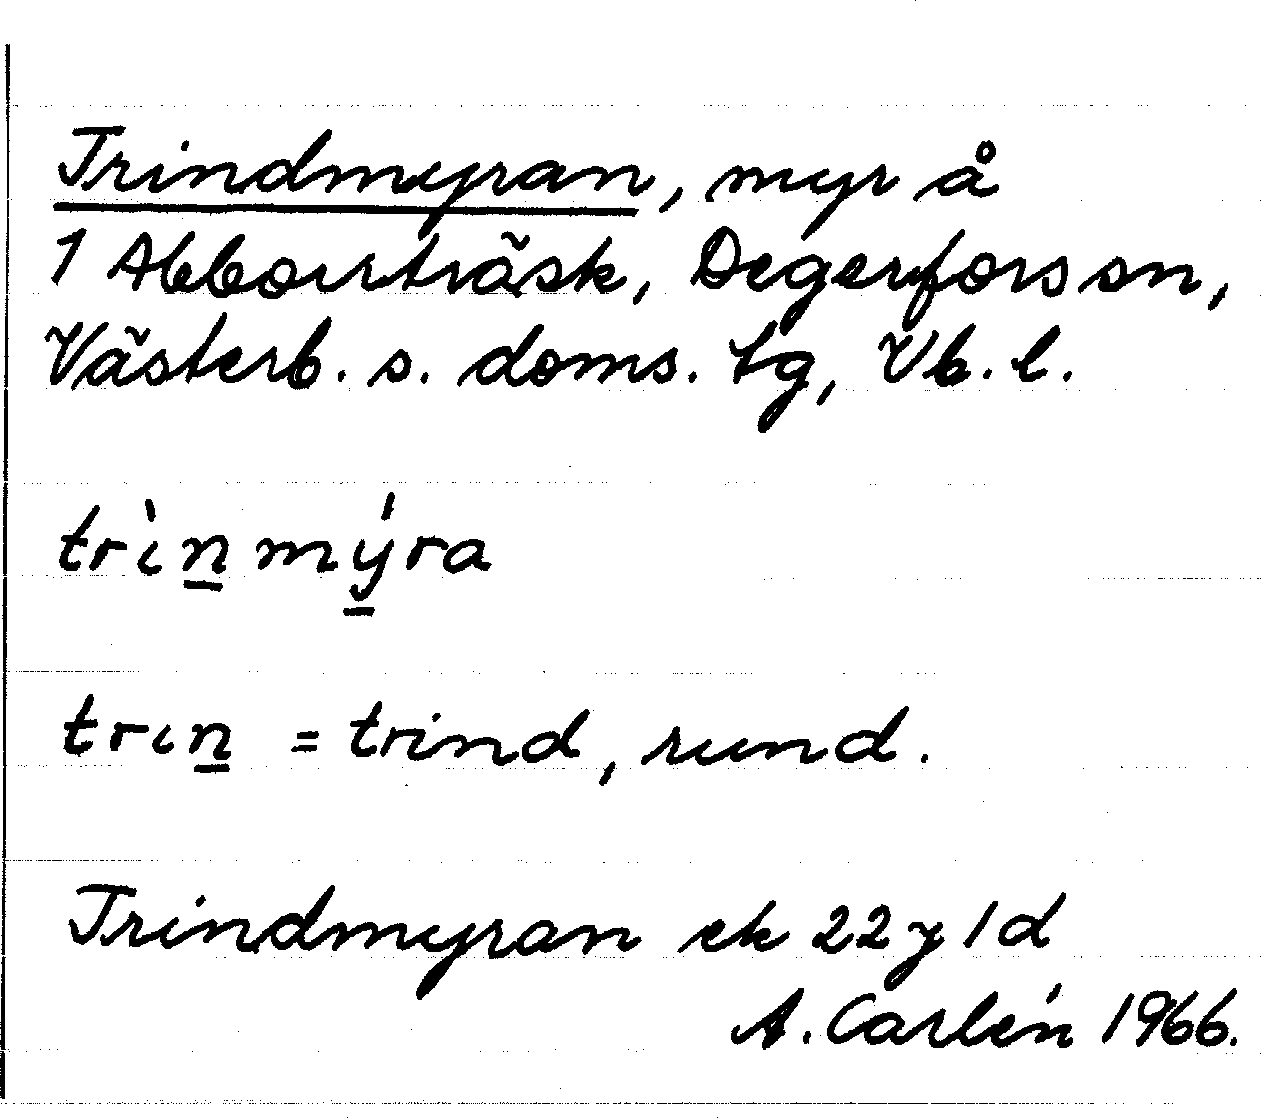 Trindmyran, myr å
1 Abborrträsk, Degerfors sn,
Västerb. s. doms. tg, Vb. l.
trìn̲mý̲ra
trın̲ = trind, rund.
Trindmyran ek 22 y 1 d
A. Carlén 1966.